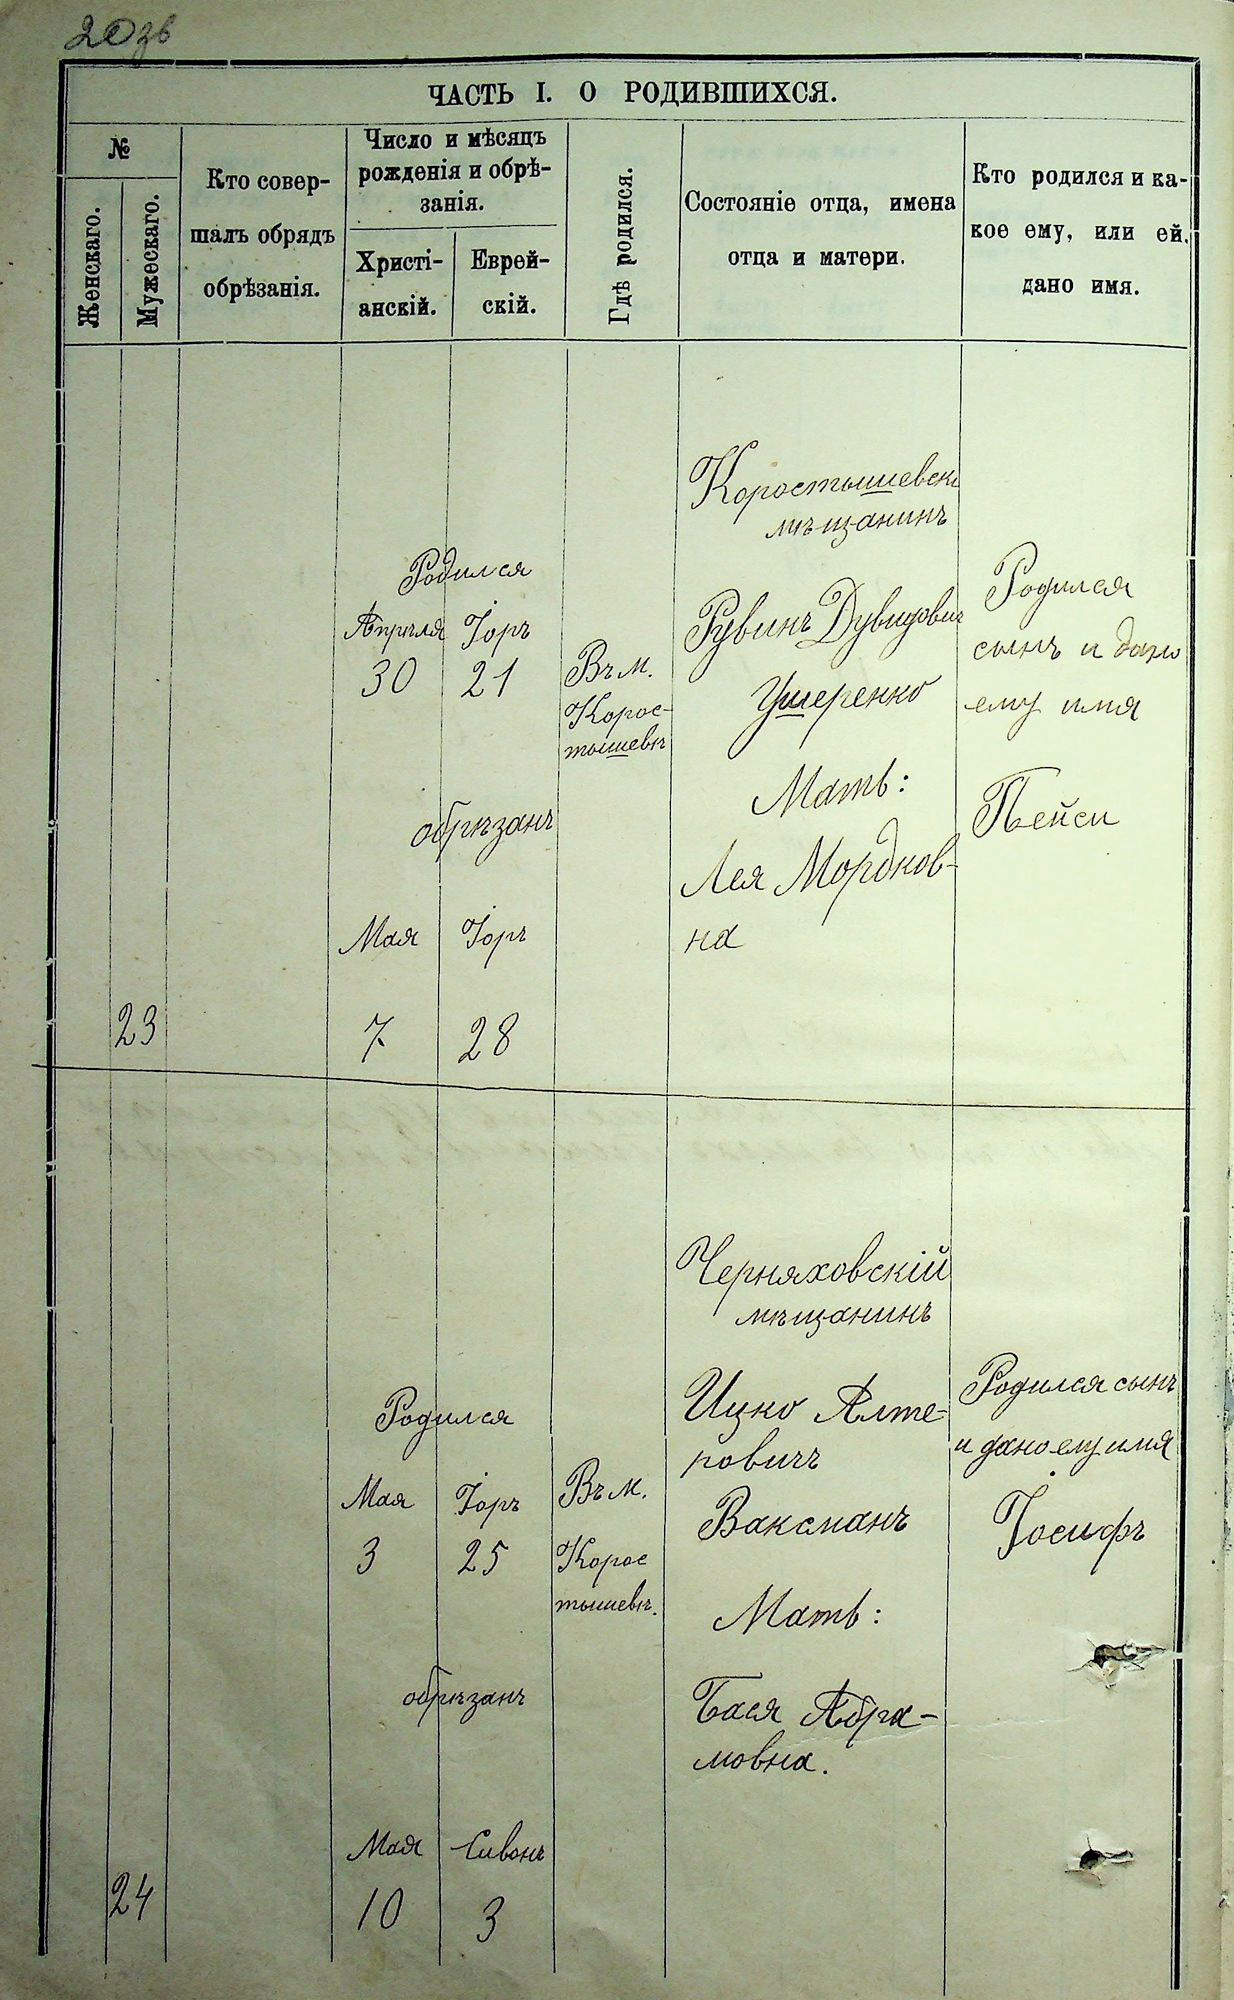 20зв
ЧАСТЬ I. О РОДИВШИХСЯ.
№
Женскаго.
Мужескаго.
Кто совер-
шалъ обрядъ
обрѣзанія.
Число и мѣсяцъ
рожденія и обрѣ-
занія.
Христі-
анскій.
Еврей-
скій.
Гдѣ родился.
Состояніе отца, имена
отца и матери.
Кто родился и ка-
кое ему, или ей,
дано имя.
23
Родился
Апрѣля Іоръ
30 21
обрѣзанъ
Мая Іоръ
7 28
Въ м.
Корос-
тышевѣ
Коростышевск
мѣщанинъ
Рувинъ Дувидович
Ушеренко
Мать:
Лея Мордков-
на
Родился
сынъ и дано
ему имя
Пейси
24
Родился
Мая Іоръ
3 25
обрѣзанъ
Мая Сивонъ
10 3
Въ м.
Корос
тышевѣ.
Черняховскій
мѣщанинъ
Ицко Алте-
ровичъ
Ваксманъ
Мать:
Бася Абра-
мовна.
Родился сынъ
и дано ему имя
Іосифъ